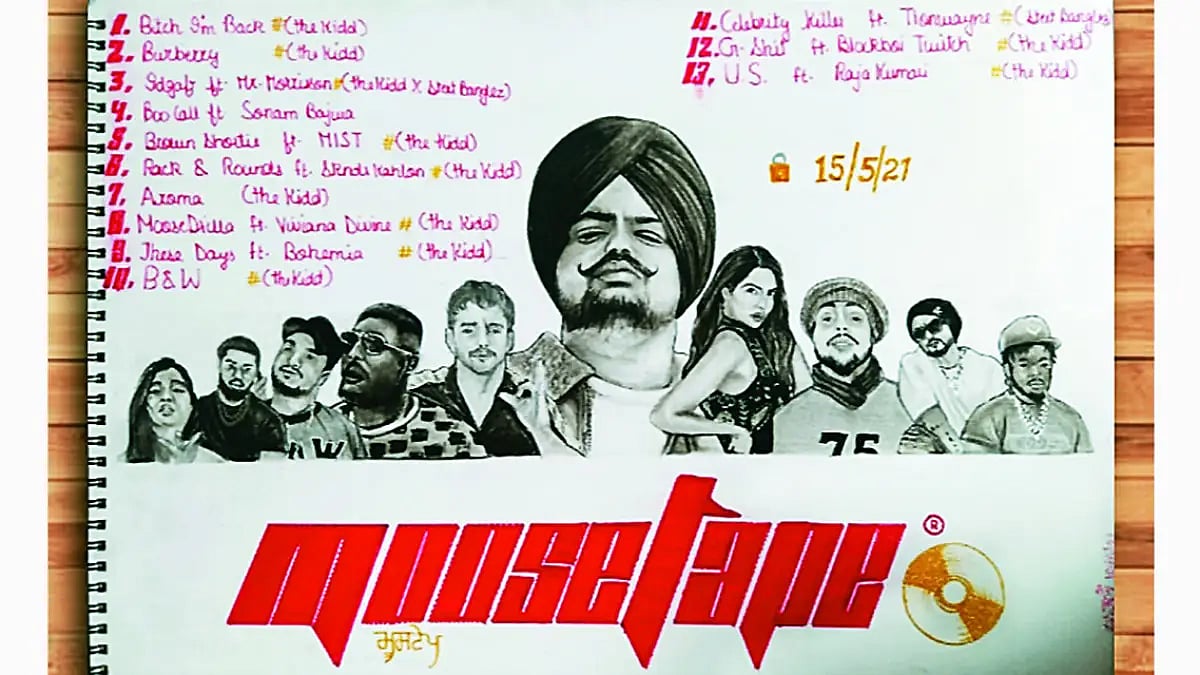 1. Bitch I'm Back #(the Kidd)
2. Burberry #(the Kidd)
3. Idgaf ft. Mr. Morrison #(the Kidd X Steel Banglez)
4. Boo Call ft Sonam Bajwa
5. Brown Shortie ft. MIST #(the Kidd)
6. Rack & Rounds ft. Sikander Kahlon #(the Kidd)
7. Aroma (the Kidd)
8. MooseDrilla ft. Viviana Divine # (the Kidd)
9. These Days ft. Bohemia # (the Kidd)
10. B&W #(the Kidd)
11. Celebrity Killer ft. Tionwayne #(Steel Banglez)
12. G-Shit ft. Blockboi Twitch #(the Kidd)
13. U.S. ft. Raja Kumari #(the Kidd)
15/5/21
AW
75
moosetape ®
ਮੂਸਟੇਪ